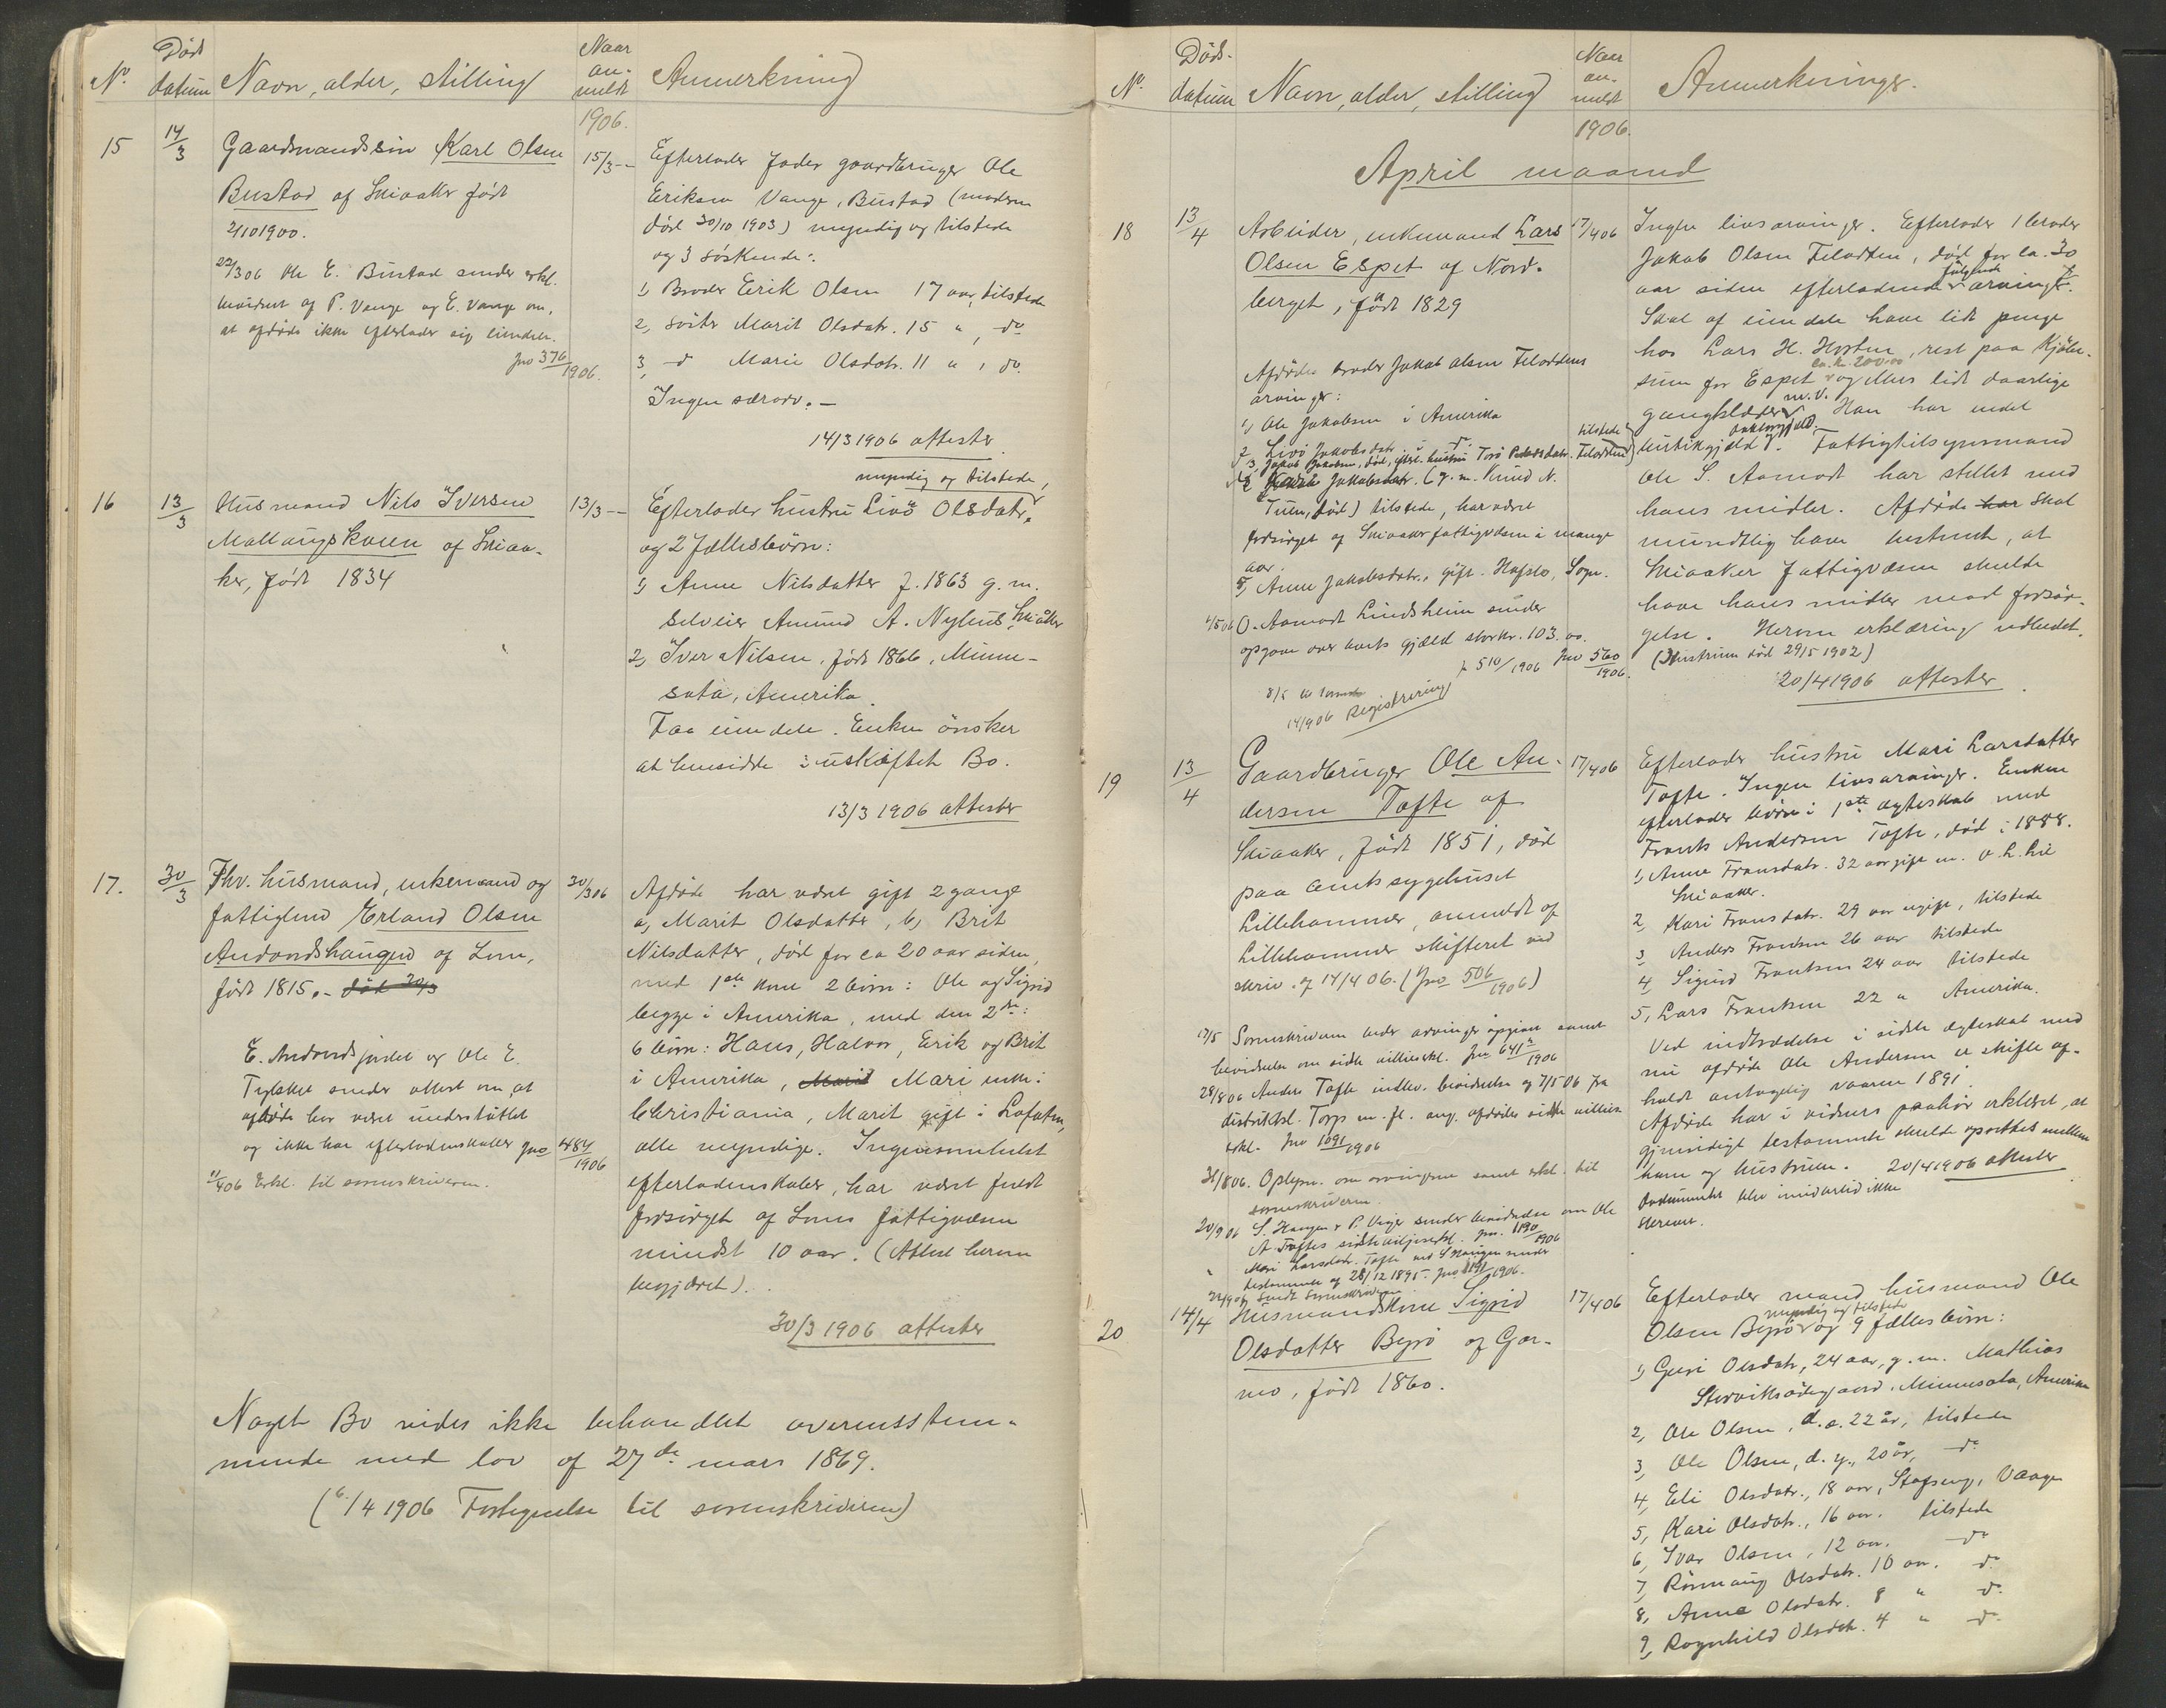 Død
Naar
No datum Navn, alder, stilling an- Anmerkning
meldt
1906.
15 14/3 Gaardmandssøn Karl Olsen 15/3 --
Bustad af Skiaaker født
2/10 1900.
22/3 06 Ole E. Bustad sender erkl.
bevidnet af P. Vange og E. Vange om,
at afdøde ikke efterlader sig eiendele.
Jno 376/1906.
Efterlader fader gaardbruger Ole
Eriksen Vange, Bustad (moderen
død 30/10 1903) myndig og tilstede
og 3 søskende:
1, Broder Erik Olsen 17 aar, tilstede
2, søster Marit Olsdatr. 15 " , do
3, -d- Marie Olsdatr. 11 " , do.
Ingen særarv. -
14/3 1906 attester
16 13/3 Husmand Nils Iversen 13/3 --
Mallaugskaren af Skiaa-
ker, født 1834
myndig og tilstede,
Efterlader hustru Livö Olsdatr.
og 2 fællesbørn:
1, Anne Nilsdatter f. 1863 g. m.
selveier Amund A. Nyhus, Skiåker
2, Iver Nilsen, født 1866, Minne-
sota, Amerika.
Faa eiendele. Enken ønsker
at hensidde i uskiftet Bo.
13/3 1906 attester
17. 30/3 Fhv. husmand, enkemand og 30/3 06
fattiglem Erland Olsen
Andvordshaugen af Lom,
født 1815. - død 30/3
E. Andvordsjordet og Ole E.
sender attest om, at
afdøde har været understøttet
og ikke har efterladenskaber Jno 484/1906
11/4 06 Erkl. til sorenskriveren.
Afdøde har været gift 2 gange
a, Marit Olsdatter, b, Brit
Nilsdatter, død for ca 20 aar siden,
med 1ste kone 2 börn: Ole og Sigrid
begge i Amerika, med den 2den:
6 börn: Hans, Halvor, Erik og Brit
i Amerika, Marit Mari enke i
Christiania, Marit gift i Lofoten,
alle myndige. Ingensomhelst
efterladenskaber, har været fuldt
forsörget af Loms fattigvæsen
mindst 10 aar. (Attest herom
begjæret).
30/3 1906 attester
Noget Bo vides ikke behandlet overensstem-
mende med lov af 27de mars 1869.
(6/4 1906 Fortegnelse til sorenskriveren)
Døds-
Naar
No. datum Navn, alder, stilling an- Anmerkninger.
meldt
1906.
April maaned
18 13/4 Arbeider, enkemand Lars 17/4 06
Olsen Espet af Nord-
berget, født 1829
Afdødes broder Jakob Olsen Feloddens
arvinger:
1, Ole Jakobsen i Amerika
2, Livö Jakobsdatr. i do.
3, Jakob Jakobsen, död, efterl. hustru Torö Pedersdatr. Felodden tilstede
4, Jakobsdatr. (g. m. Knud N.
Tuen, död) tilstede, har været
forsörget af Skiaaker fattigvæsen i mange
aar.
5, Anne Jakobsdatr., gift. Hafslo, Sogn.
4/5 06 O. Aamodt Lindsheim sender
opgave over boets gjæld stor kr. 103.00.
J. 510/1906 Jno 560/1906.
14/9 06 Registrering
Ingen livsarvinger. Efterlader 1 broder
Jakob Olsen Felodden, død for ca. 30
aar siden efterladende følgende arvinger.
Skal af eiendele have lidt penge
hos Lars H. , rest paa Kjöbe-
sum for Espet ca. kr. 200.00 og ellers lidt daarlige
gangklæder m. v. Han har endel
butikgjæld. Fattigtilsynsmand
Ole S. Aamodt har stellet med
hans midler. Afdøde har skal
mundtlig have bestemt, at
Skiaaker fattigvæsen skulde
have hans midler mod forsör-
gelse. Herom erklæring udbedet.
(Hustruen död 29/5 1902)
20/4 1906 attester
19 13/4 Gaardbruger Ole An- 17/4 06
dersen Tofte af
Skiaaker, født 1851, död
paa Amtssygehuset
Lillehammer, anmeldt af
Lillehammer skifteret ved
skriv. af 14/4 06. (Jno 506/1906)
17/5 Sorenskriveren beder arvinger opgivet samt
bevidnelse om sidste villieserkl. Jno 641/1906
28/8 06 Anders Tofte indlev. bevidnelse af 7/5 06 fra
distriktsl. Torp m. fl. ang. afdødes sidste villies
erkl. Jno 1091/1906
31/8 06. Oplysn. om arvingerne samt erkl. til
sorenskriveren.
20/9 06 S. Haugen & P. sender bevidnelse om Ole
A. Toftes sidste viljeserkl. Jno. 1190/1906
" Mari Larsdatr. Tofte ved S Haugen sender
testamente af 28/12 1895. Jno 1191/1906.
22/9 06 Sendt Sorenskriveren
Efterlader hustru Mari Larsdatter
Tofte. Ingen livsarvinger. Enken
efterlader börn i 1ste ægteskab med
Frants Andersen Tofte, död i 1888.
1, Anne Fransdatr. 32 aar gift m. O. L. Lie
Skiaaker.
2, Kari Fransdatr. 29 aar ugift, tilstede
3, Anders Frantsen 26 aar tilstede
4, Sigurd Frantsen 24 aar tilstede
5, Lars Frantsen 22 " Amerika.
Ved indtrædelse i sidste ægteskab med
nu afdøde Ole Andersen er skifte af-
holdt antagelig vaaren 1891.
Afdøde har i vidners paahör erklæret, at
gjensidigt testamente skulde oprettes mellem
ham og hustruen. 20/4 1906 attester
Dokumentet blev imidlertid ikke
skrevet.
20 14/4 Husmandskone Sigrid 17/4 06
Olsdatter Byrö af Gar-
mo, født 1860.
Efterlader mand husmand Ole
Olsen Byrö myndig og tilstede og 9 fællesbörn:
1, Guri Olsdatr, 24 aar, g. m. Mathias
Storviksödegaard, Minnesota, Amerika
2, Ole Olsen, d. e. 22 år, tilstede
3, Ole Olsen, d. y., 20 år, do
4, Eli Olsdatr., 18 aar, , Vaage
5, Kari Olsdatr., 16 aar. tilstede
6, Ivar Olsen, 12 aar. do
7, Rönnaug Olsdatr. 10 aar. do
8, Anne Olsdatr. 8 " do
9, Ragnhild Olsdatr. 4 " do